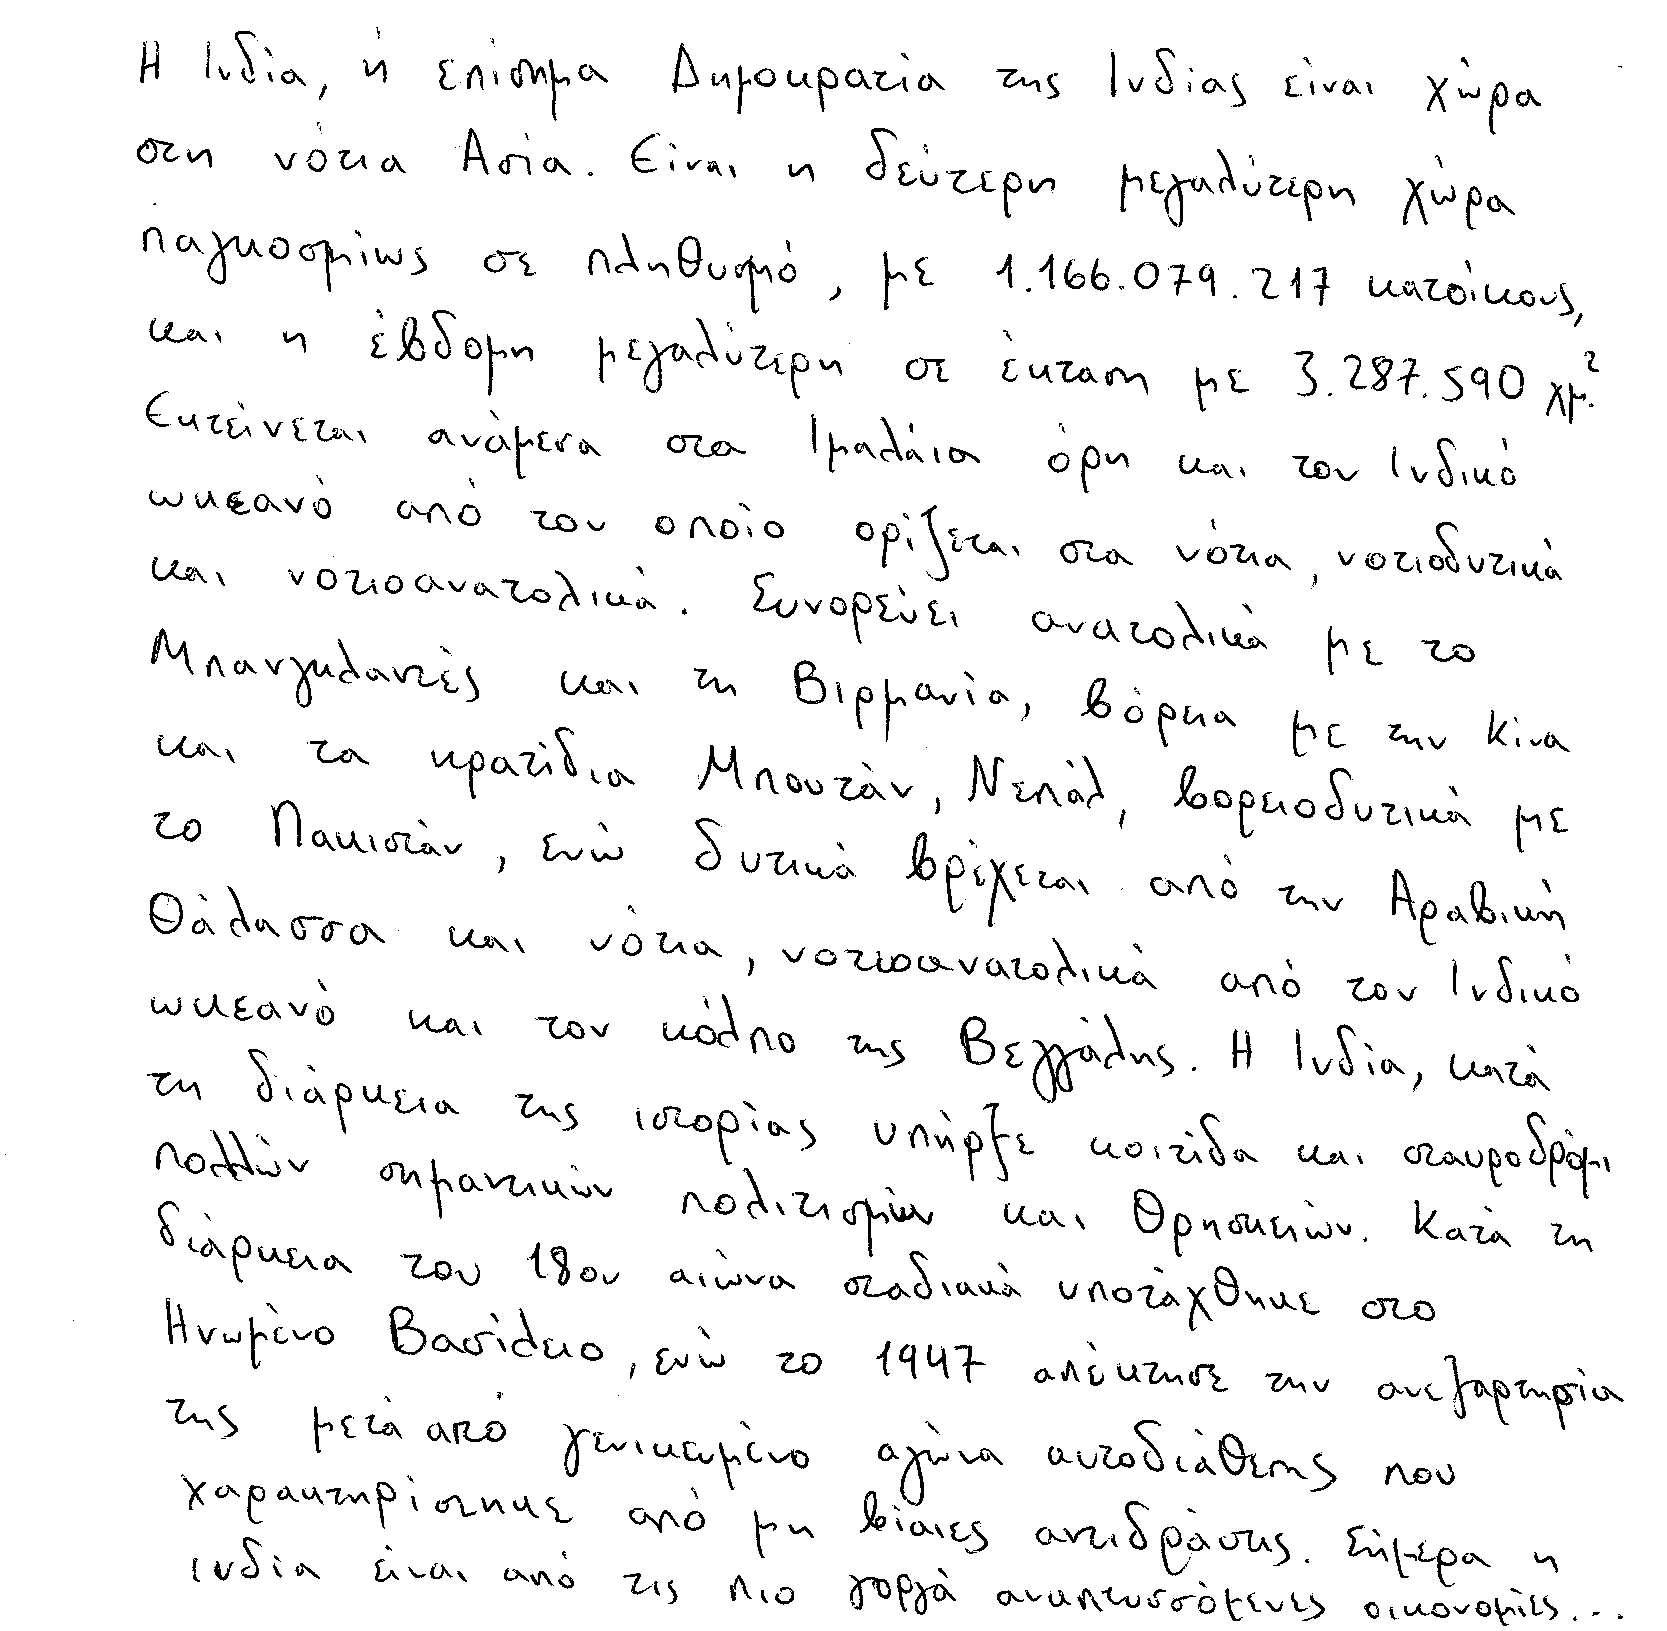 Η Ινδία, ή επίσημα Δημοκρατία της Ινδίας είναι χώρα
στη νότια Ασία. Είναι η δεύτερη μεγαλύτερη χώρα
παγκοσμίως σε πληθυσμό, με 1.166.079.217 κατοίκους,
και η έβδομη μεγαλύτερη σε έκταση με 3.287.590 χμ.²
Εκτείνεται ανάμεσα στα Ιμαλάια όρη και τον Ινδικό
ωκεανό από τον οποίο ορίζεται στα νότια, νοτιοδυτικά
και νοτιοανατολικά. Συνορεύει ανατολικά με το
Μπανγκλαντές και τη Βιρμανία, βόρεια με την Κίνα
και τα κρατίδια Μπουτάν, Νεπάλ, βορειοδυτικά με
το Πακιστάν, ενώ δυτικά βρέχεται από την Αραβική
Θάλασσα και νότια, νοτιοανατολικά από τον Ινδικό
ωκεανό και τον κόλπο της Βεγγάλης. Η Ινδία, κατά
τη διάρκεια της ιστορίας υπήρξε κοιτίδα και σταυροδρόμι
πολλών σημαντικών πολιτισμών και θρησκειών. Κατά τη
διάρκεια του 18ου αιώνα σταδιακά υποτάχθηκε στο
Ηνωμένο Βασίλειο, ενώ το 1947 απέκτησε την ανεξαρτησία
της μετά από γενικευμένο αγώνα αυτοδιάθεσης που
χαρακτηρίστηκε από μη βίαιες αντιδράσεις. Σήμερα η
ινδία είναι από τις πιο γοργά αναπτυσσόμενες οικονομίες...